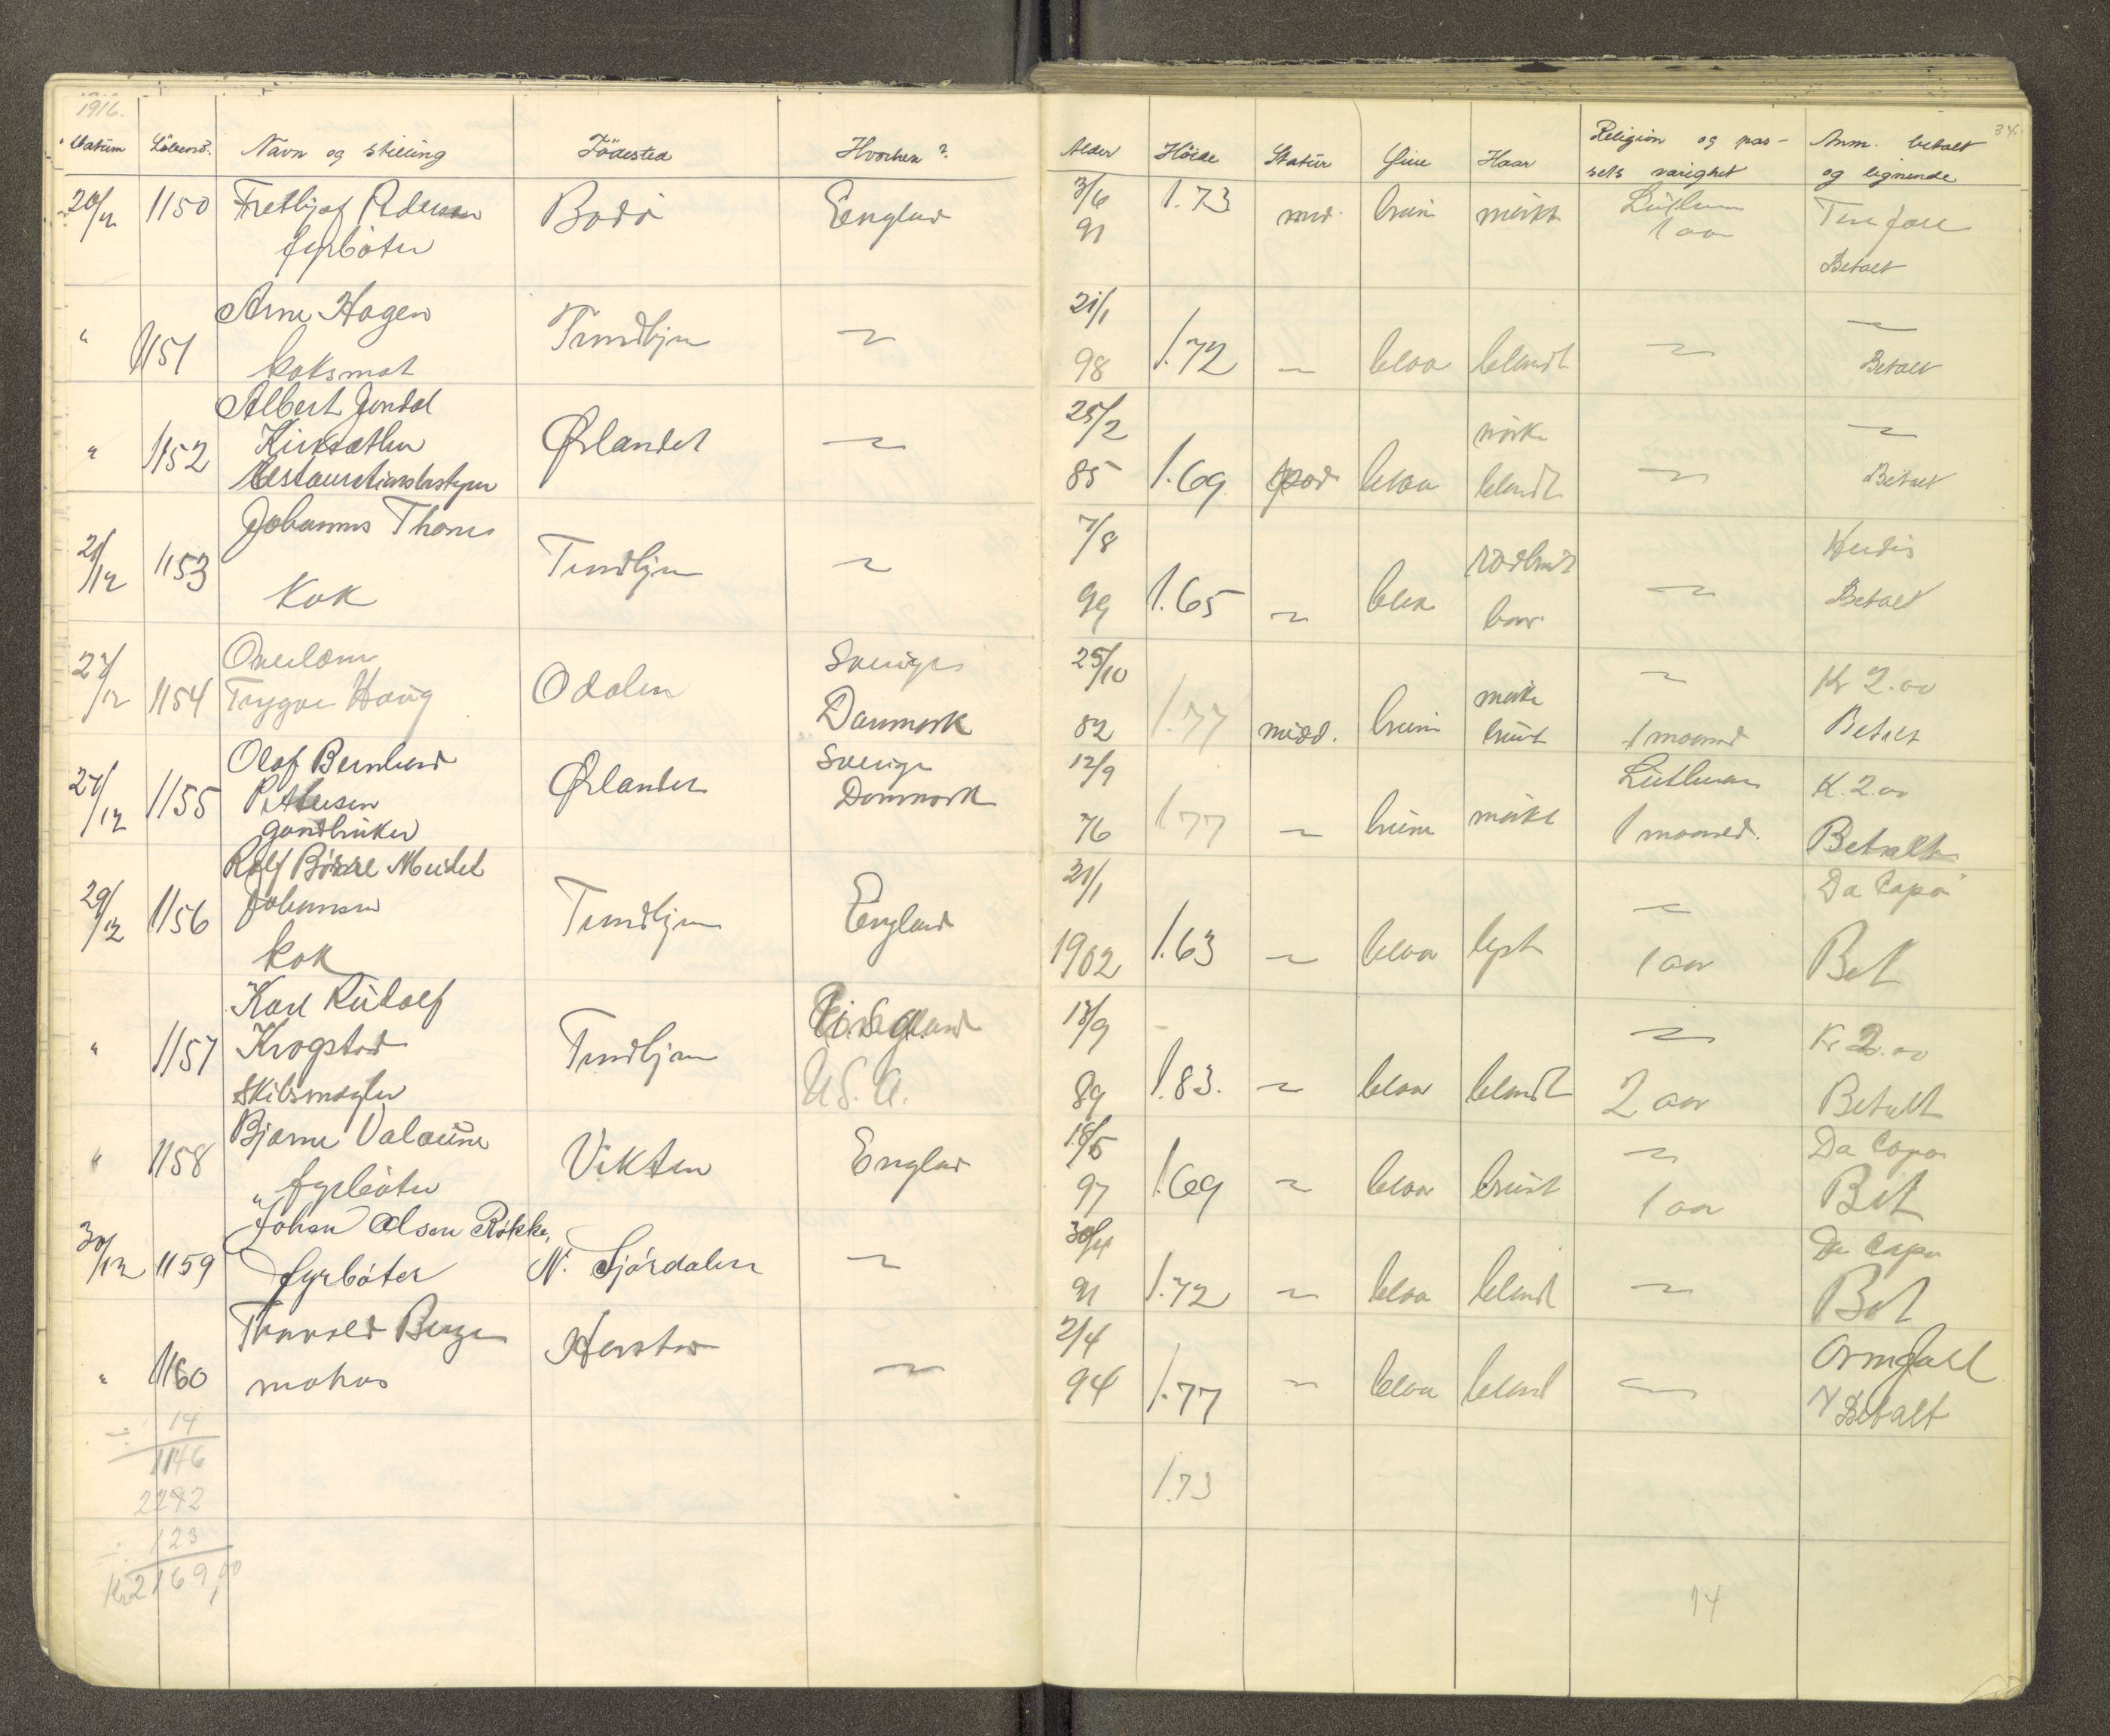 1916.
34.
Datum Löbenr. Navn og stilling Födested Hvorhen? Alder Höide Statur Öine Haar Religion og pas- Anm. betalt
sets varighet og lignende
20/12 1150 Bodö England 3/6 1.73 mid. brun mörkt Luthersk
fyrböter 91 1 aar
Betalt
" 1151 Arne Hagen Trondhjem ~ 21/1 1.72 ~ blaa blondt ~ ~
koksmat 98 Betalt
Albert Jendal 25/2 mörke ~
" 1152 Örlandet ~ 85 1.69 spæd blaa blondt ~ Betalt
Restaurationsbestyrer
21/12 1153 Johannes Trondhjem ~ 7/8 1.65 ~ blaa rödbrunt ~
Kok 99 haar Betalt
27/12 1154 Odalen Sverige 25/10 1.77 midd. brun mörke ~ Kr 2.00
Trygve Haug Danmark 82 brunt 1 maaned Betalt
27/12 1155 Olaf Bernhard Örlandet Sverige 12/9 1.77 ~ brune mörkt Luthersk K. 2.00
Pettersen Danmark 76 1 maaned. Betalt
gaardbruker
29/12 1156 Rolf Börre Meidel Trondhjem England 21/1 1.63 ~ blaa lyst ~ Da Capo
Johansen 1902 1 aar Bet
kok
" 1157 Karl Rudolf Trondhjem 13/9 1.83. ~ blaa blondt ~ Kr 2.00
Krogstad U.S.A. 89 2 aar Betalt
Skibsmægler
" 1158 Bjarne Valaune Vikten England 18/5 1.69 ~ blaa brunt ~ Da Capo
" fyrböter 97 1 aar Bet
30/12 1159 Johan Olsen Røkke, N. Stjördalen ~ 30/4 1.72 ~ blaa blond ~ Da Capo
fyrböter 91 Bet
" 1160 Thorvald Berge ~ 2/4 1.77 ~ blaa blond ~
matros 94 Betalt
÷ 14
1146
2292
÷ 123
Kr 2169,00
1.73
14